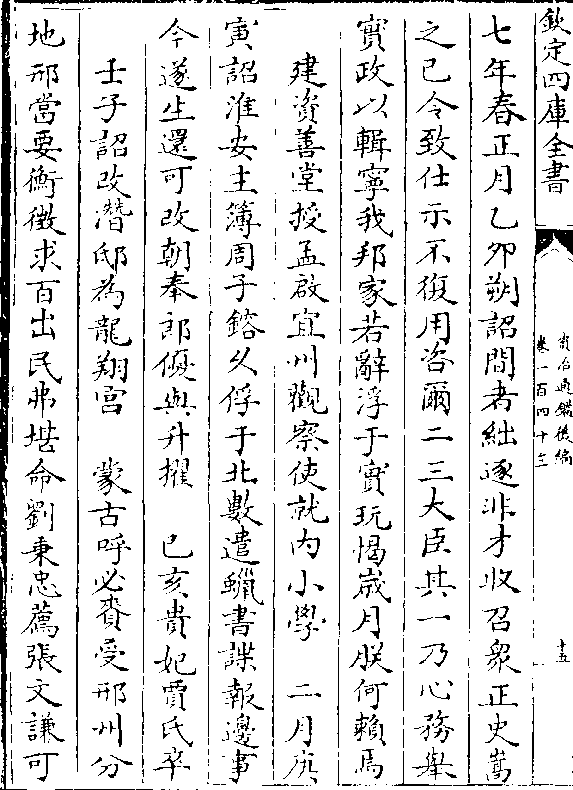 欽定四庫全書
資治通鑑後編
卷一百四十三
十五
七年春正月乙卯朔詔間者絀逐非才收召衆正史嵩
之已令致仕示不復用咨爾二三大臣其一乃心務舉
實政以輯寧我邦家若辭浮于實玩愒歲月朕何賴焉
建資善堂授孟啟宜州觀察使就內小學　二月庚
寅詔淮安主簿周子鎔久俘于北數遣蠟書諜報邊事
今遂生還可改朝奉郎優與升擢　己亥貴妃賈氏卒
壬子詔改潛邸為龍翔宮　蒙古呼必賚受邢州分
地邢當要衝徵求百出民弗堪命劉秉忠薦張文謙可